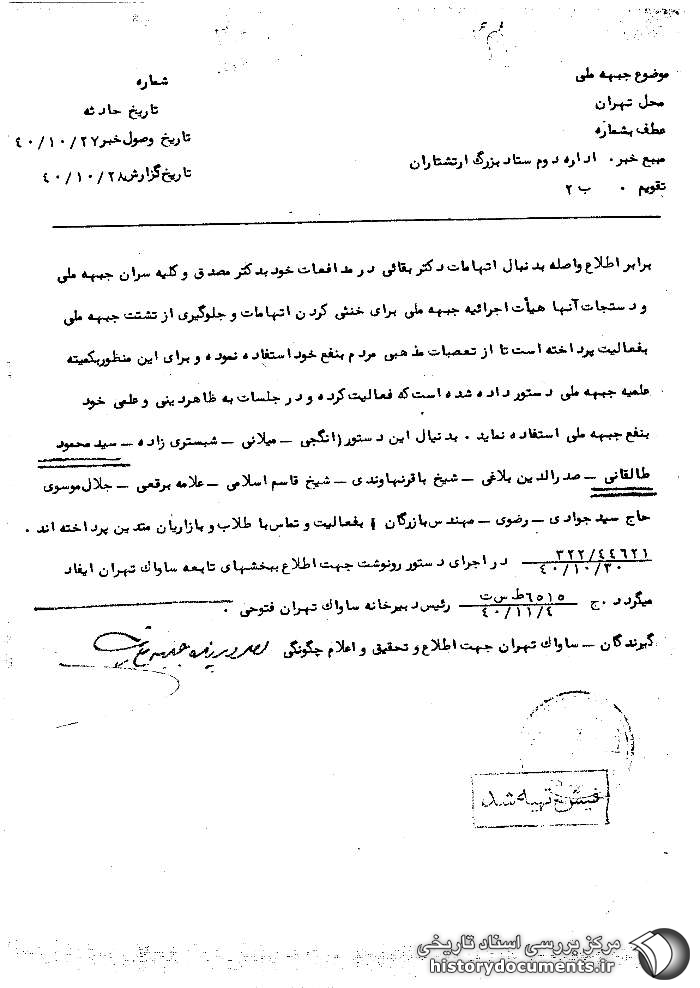 موضوع جبهه ملی
محل تهران
عطف بشماره
منبع خبر . اداره دوم ستاد بزرگ ارتشتاران
تقویم . ب ۲
شماره
تاریخ حادثه
تاریخ وصول خبر ۴۰/۱۰/۲۷
تاریخ گزارش ۴۰/۱۰/۲۸
برابر اطلاع واصله بدنبال اتهامات دکتر بقائی در مدافعات خود بدکتر مصدق و کلیه سران جبهه ملی
و دستجات آنها هیأت اجرائیه جبهه ملی برای خنثی کردن اتهامات و جلوگیری از تشتت جبهه ملی
بفعالیت پرداخته است تا از تعصبات مذهبی مردم بنفع خود استفاده نموده و برای این منظور بکمیته
علمیه جبهه ملی دستور داده شده است که فعالیت کرده و در جلسات به ظاهر دینی و علمی خود
بنفع جبهه ملی استفاده نماید . بدنبال این دستور (انگجی – میلانی – شبستری زاده – سید محمود
طالقانی – صدرالدین بلاغی – شیخ باقر نهاوندی – شیخ قاسم اسلامی – علامه برقعی – جلال موسوی
حاج سید جوادی – رضوی – مهندس بازرگان ) بفعالیت و تماس با طلاب و بازاریان متدین پرداخته اند .
۳۲۲/۴۴۶۲۱
۴۰/۱۰/۳۰ در اجرای دستور رونوشت جهت اطلاع ببخشهای تابعه ساواک تهران ایفاد
میگردد . ج ۶۵۱۵ ط س ت
۴۰/۱۱/۴ رئیس دبیرخانه ساواک تهران فتوحی .
گیرندگان – ساواک تهران جهت اطلاع و تحقیق و اعلام چگونگی
فیش تهیه شد
مرکز بررسی اسناد تاریخی
historydocuments.ir